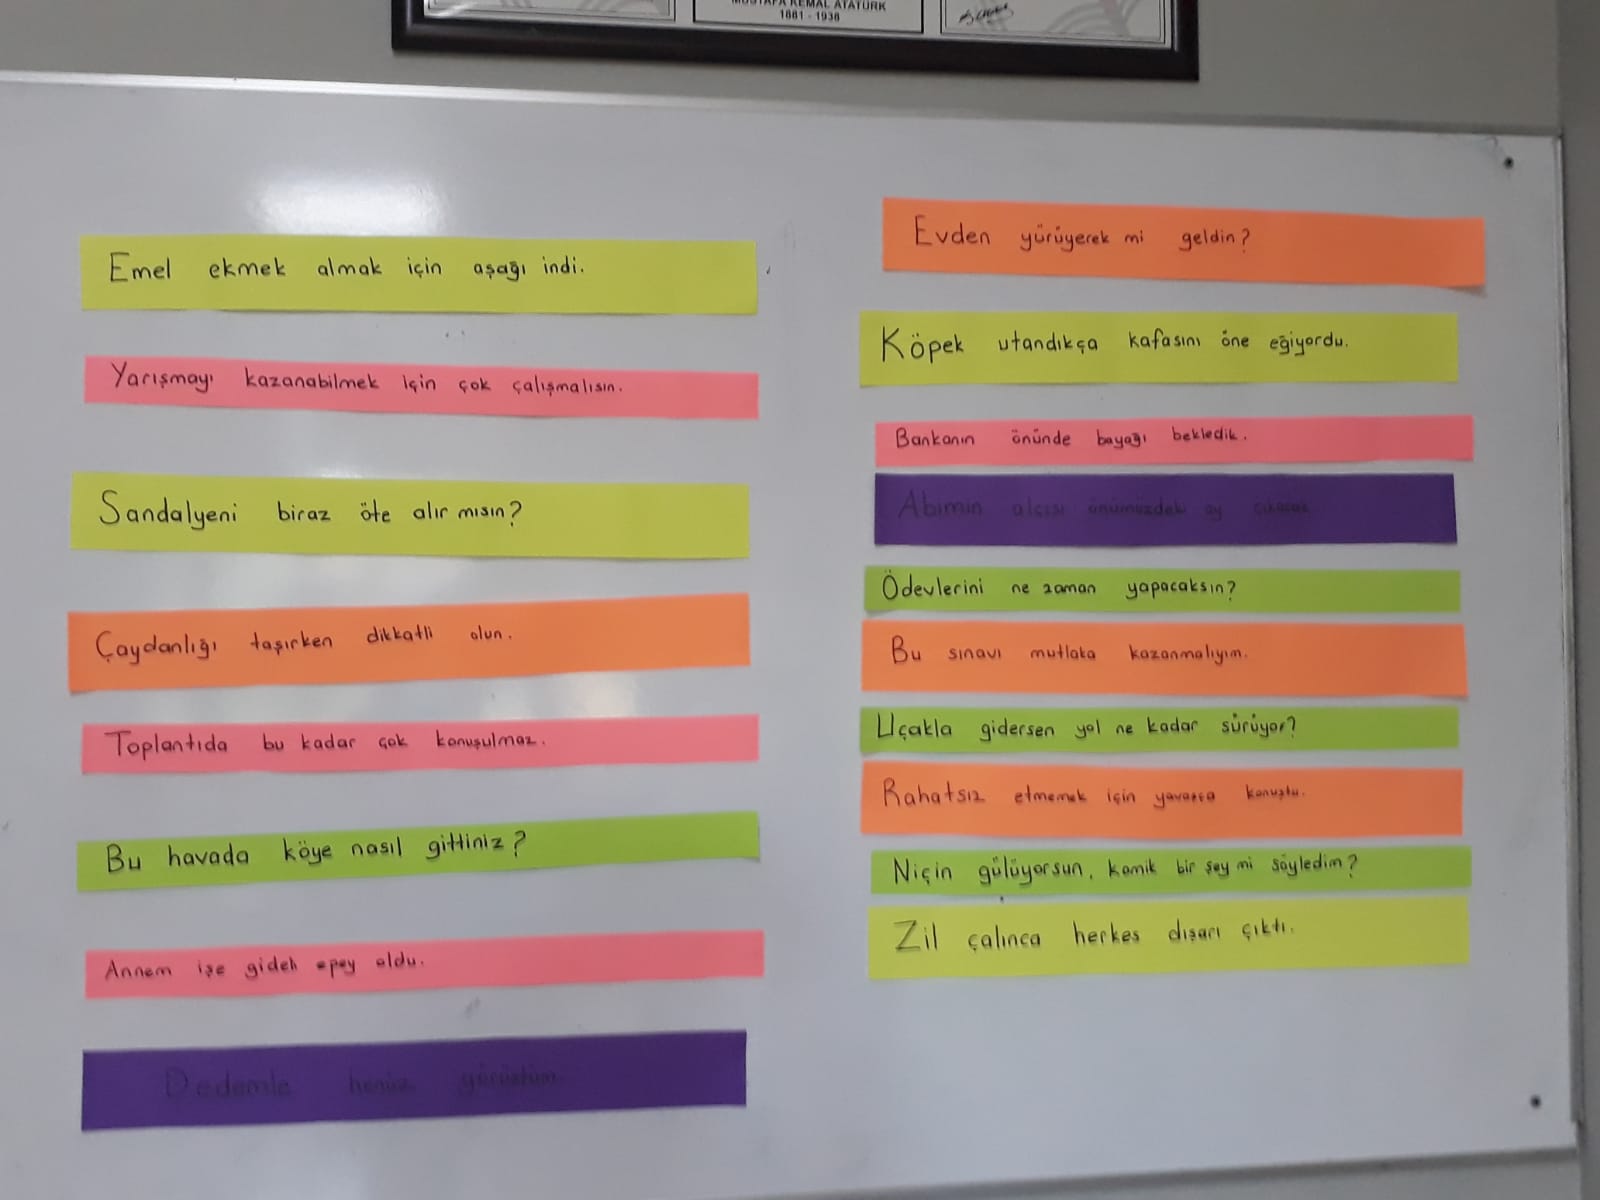 MUSTAFA KEMAL ATATÜRK
1881 - 1938
Emel ekmek almak için aşağı indi.
Yarışmayı kazanabilmek için çok çalışmalısın.
Sandalyeni biraz öte alır mısın?
Çaydanlığı taşırken dikkatli olun.
Toplantıda bu kadar çok konuşulmaz.
Bu havada köye nasıl gittiniz?
Annem işe gideli epey oldu.
Dedemle henüz görüştüm.
Evden yürüyerek mi geldin?
Köpek utandıkça kafasını öne eğiyordu.
Bankanın önünde bayağı bekledik.
Abimin alçısı önümüzdeki ay çıkacak
Ödevlerini ne zaman yapacaksın?
Bu sınavı mutlaka kazanmalıyım.
Uçakla gidersen yol ne kadar sürüyor?
Rahatsız etmemek için yavaşça konuştu.
Niçin gülüyorsun, komik bir şey mi söyledim?
Zil çalınca herkes dışarı çıktı.